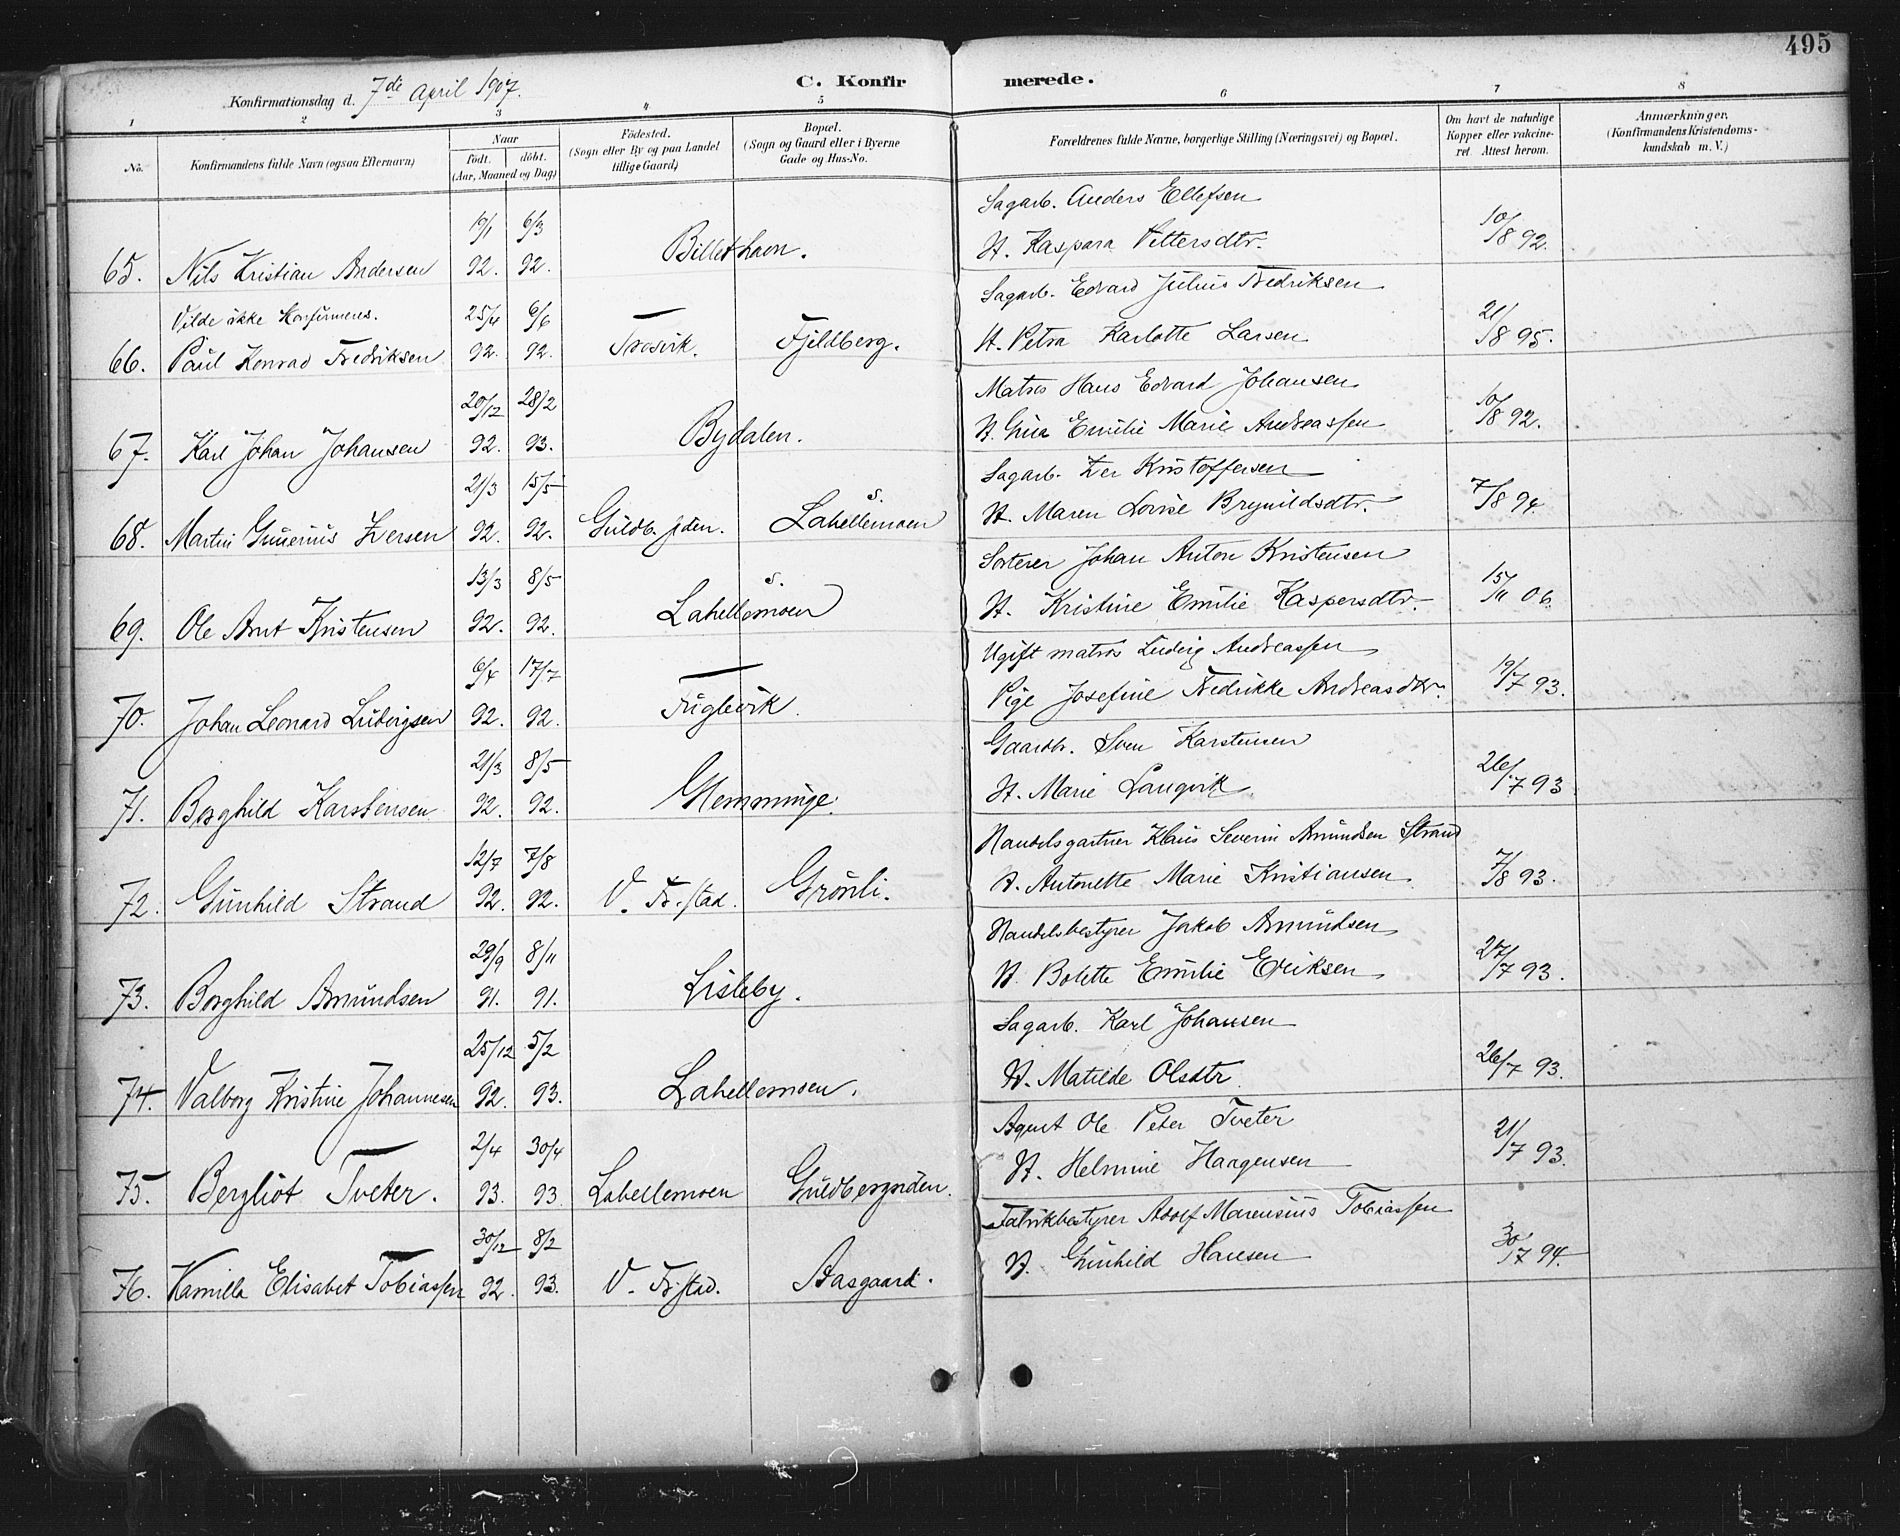 495
C. Konfirmerede.
Konfirmationsdag d. 7de April 1907.
1 2 3 4 5 6 7 8
No.
Konfirmandens fulde Navn (ogsaa Efternavn)
Naar
födt. döbt.
(Aar, Maaned og Dag)
Födested.
(Sogn eller By og paa Landet
tillige Gaard)
Bopæl.
(Sogn og Gaard eller i Byerne
Gade og Hus-No.
Forældrenes fulde Navne, borgerlige Stilling (Næringsvei) og Bopæl.
Om havt de naturlige
Kopper eller vakcine-
ret. Attest herom.
Anmærkninger,
(Konfirmandens Kristendoms-
kundskab m. V.)
19/1 6/3 Sagarb. Anders Ellefsen
65. Nils Kristian Andersen 92. 92. Billethavn. H. Kaspara Pettersdtr. 10/8 92.
Vilde ikke Konfirmeres. 25/4 6/6 Sagarb. Edvard Julius Fredriksen
66. Paul Konrad Fredriksen 92. 92. Trosvik. Fjeldberg. H. Petra Karlotte Larsen 21/8 95.
20/12 28/2 Matros Hans Edvard Johansen
67. Karl Johan Johansen 92. 93. Bydalen. H. Emilie Marie Andreassen 10/8 92.
21/3 15/5 Sagarb. Iver Kristoffersen
68. Martin Gunerius Iversen 92. 92. Guldb.siden. S. Lahellemoen H. Maren Lovise Brynildsdtr. 7/8 94
13/3 8/5 Sorterer Johan Anton Kristensen
69. Ole Arnt Kristensen 92. 92. S. Lahellemoen H. Kristine Emilie Kaspersdtr. 15/11 06.
6/4 17/7 Ugift matros Ludvig Andreassen
70. Johan Leonard Ludvigsen 92. 92. Fuglevik Pige Josefine Fredrikke Andreasdtr. 19/7 93.
21/3 8/5 Gaardbr. Sven Karstensen
71. Borghild Karstensen 92. 92. Glemminge. H. Marie Langvik 26/7 93
12/7 7/8 Handelsgartner Klaus Severin Amundsen Strand
72. Gunhild Strand 92. 92. V. Fr.stad. Grönli. H. Antonette Marie Kristiansen 7/8 93.
29/9 8/11 Handelsbestyrer Jakob Amundsen
73. Borghild Amundsen 91. 91. Lisleby. H. Bolette Emilie Eriksen 27/7 93.
25/12 5/2 Sagarb. Karl Johansen
74. Valborg Kristine Johannesen 92. 93. Lahellemoen. H. Matilde Olsdtr. 26/7 93.
2/4 30/4 Agent Ole Peter Tveter
75. Bergliot Tveter. 93. 93. Lahellemoen Guldbergsiden. H. Helmine Haagensen 21/7 93.
30/12 8/2 Fabrikbestyrer Adolf Marensius Tobiassen
76. Kamilla Elisabet Tobiassen 92. 93. V. Fr.stad. Aasgaard. H. Gunhild Hansen 30/7 94.